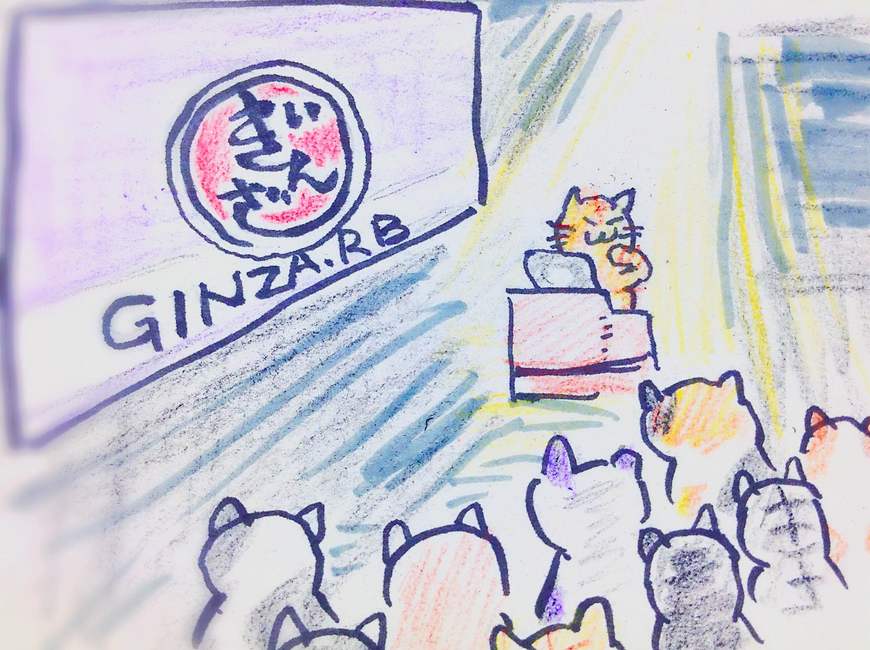 ぎんざ
GINZA.RB